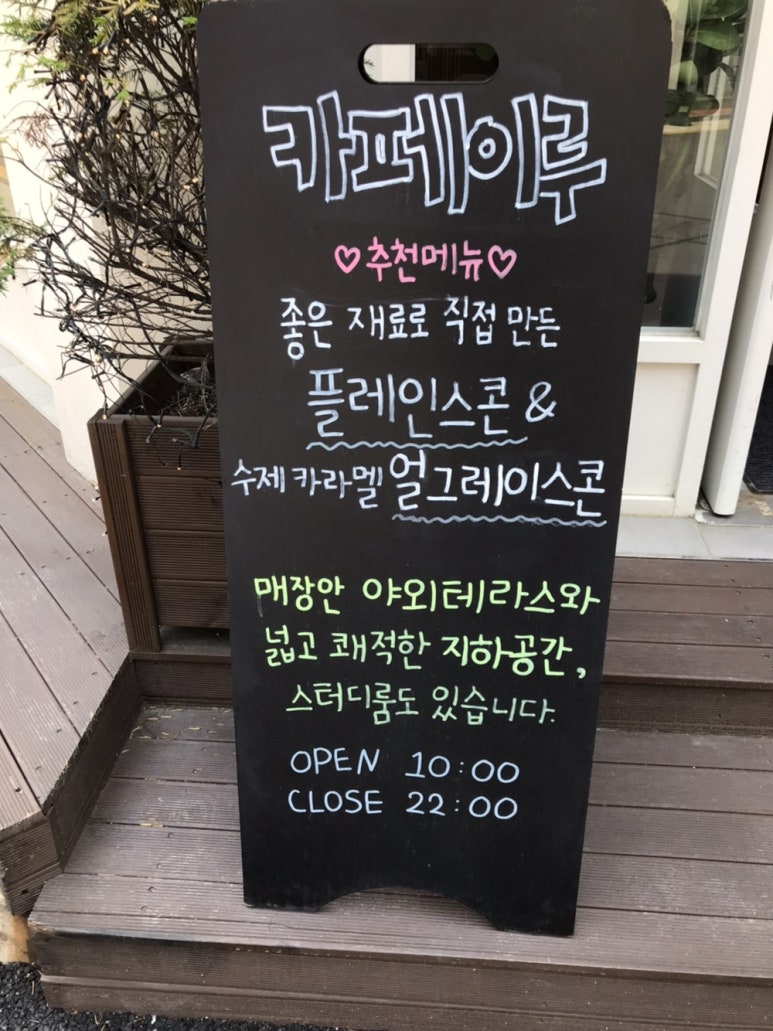 카페이루
♡추천메뉴♡
좋은 재료로 직접 만든
플레인스콘 &
수제 카라멜 얼그레이스콘
매장안 야외테라스와
넓고 쾌적한 지하공간,
스터디룸도 있습니다.
OPEN 10:00
CLOSE 22:00